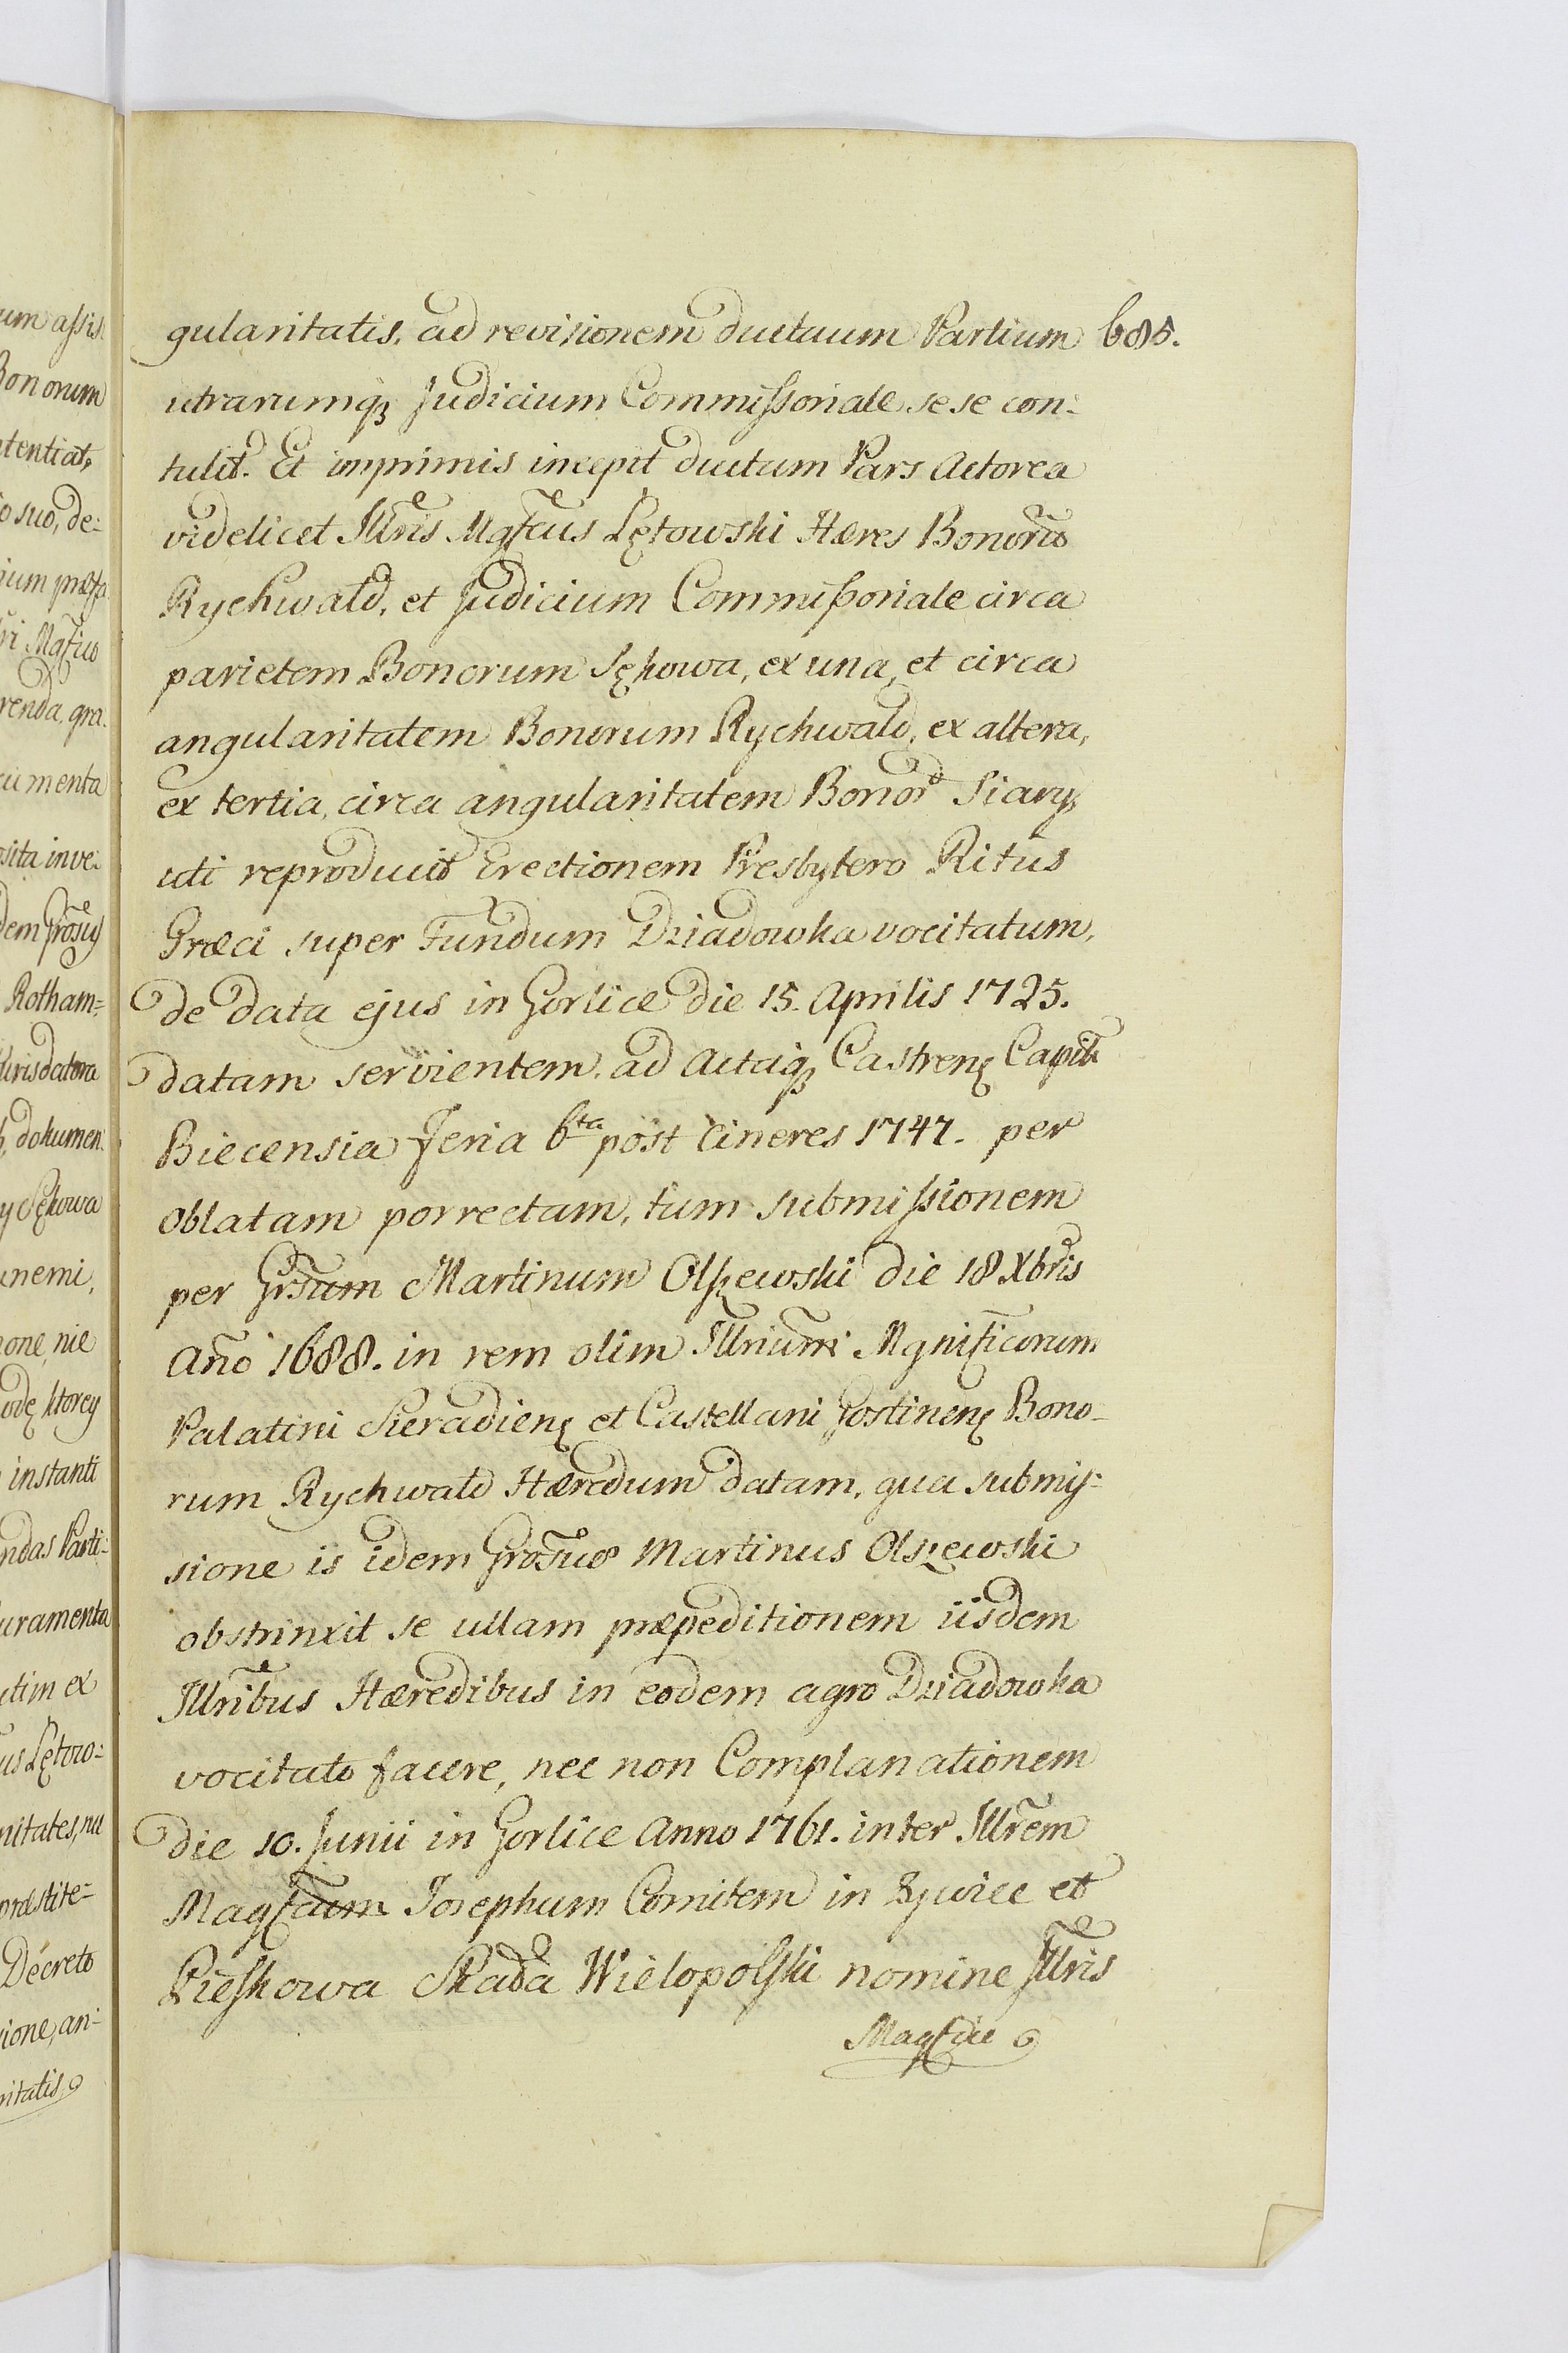 um assis
Bonorum
ntentiat,
io suo, de:
ium præfa
ri Magfico
renda, gra.
cumenta
osita inve:
dem Grosus
Rotham=
Jurisdatora
h, dokumen:
y Sękowa
unemi,
one, nie
odę ktorey
instanti
ndas Parti:
uramenta
ctim ex
us Lętow:
nitates, nu
præstite=
Decreto
ione, an-
ritatis
gularitatis, ad revisionem ductuum Partium 685.
utrarumq3 Judicium Commissoriale sese con:
tulit. Et imprimis incepit ductum Pars Actorea
videlicet Illris Mgfcus Lętowski Hæres Bonoru
Rychwald, et Judicium Commissoriale circa
parietem Bonorum Sękowa, ex una, et circa
angularitatem Bonorum Rychwald, ex altera,
ex tertia, circa angularitatem Bonor Siary,
uti reproducit Erectionem Presbytero Ritus
Græci super Fundum Dziadowka vocitatum,
de data ejus in Gorlice die 15. Aprilis 1725.
datam servientem. ad Actaq3 Castrenę Capit
Biecensia Feria 6ta post Cineres 1747. per
oblatam porrectam, tum submissionem
per Grsum Martinum Olszewski die 18 Xbris
Año 1688. in rem olim Illrium Mgnificorum
Palatini Sieradienę et Castellani Gostinenę Bono-
rum Rychwald Hæredum datam, qua submis:
sione is idem Grosus Martinus Olszewski
obstrinxit se ullam præpeditionem iisdem
Illribus Hæredibus in eodem agro Dziadowka
vocitato facere, nec non Complanationem
die 10. Junii in Gorlice Anno 1761. inter Illrem
Magfcum Josephum Comitem in Zywiec et
Pieskowa Skała Wielopolski nomine Illris
Magficæ